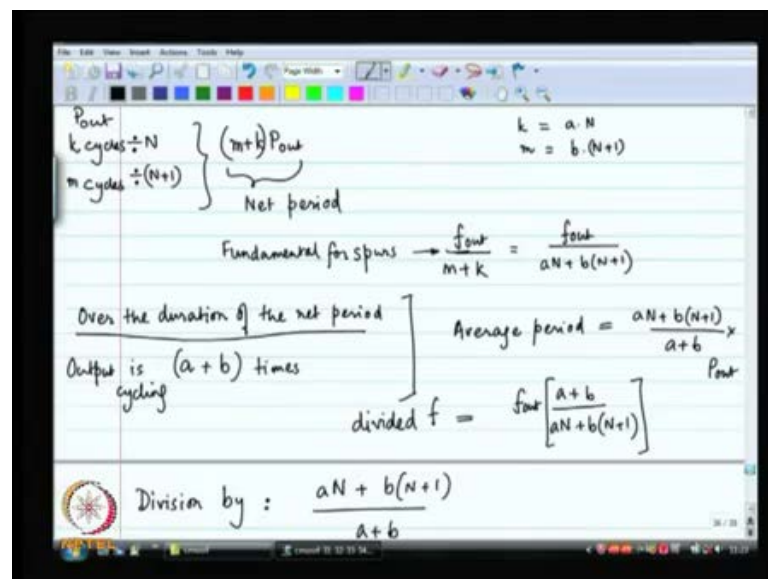 File Edit View Insert Actions Tools Help
Page Width
Pout
k cycles ÷ N
m cycles ÷ (N+1)
(m+k) Pout
Net period
k = a·N
m = b·(N+1)
Fundamental for spurs → fout / (m+k) = fout / (aN + b(N+1))
Over the duration of the net period
Output is cycling (a+b) times
Average period = (aN + b(N+1)) / (a+b) × Pout
divided f = fout [(a+b) / (aN + b(N+1))]
Division by : (aN + b(N+1)) / (a+b)
NPTEL